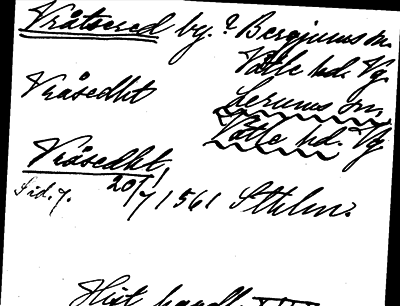 Vråtsered by. ? Bergums sn.
Vätle hd. Vg.
Vråsedht Lerums sn
Vätle hd. Vg
Vråsedht
Fid. 7. 20/7 1561 Sthlm.
Hist. handl.